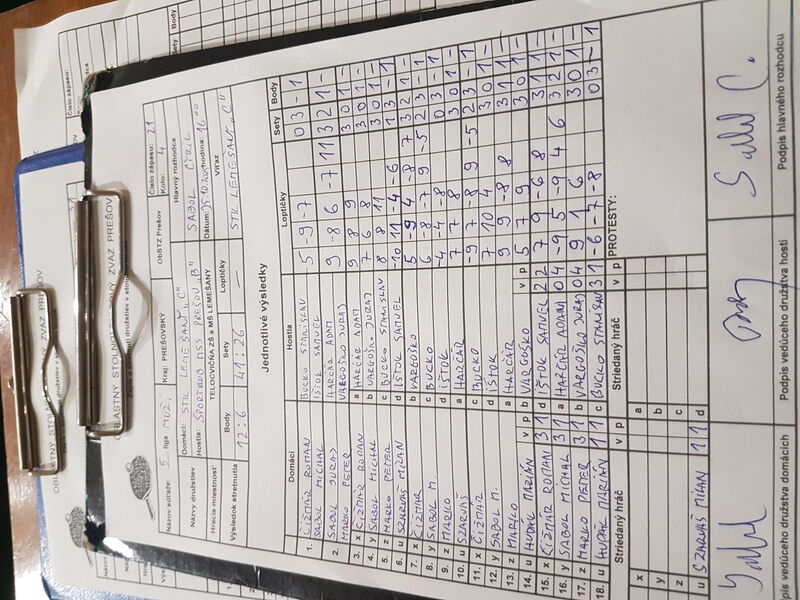 OBLASTNÝ STOLNOTENISOVÝ ZVAZ PREŠOV
Názov súťaže: 5. liga MUŽI Kraj: PREŠOVSKÝ ObSTZ Prešov Číslo zápasu: 21
Kolo: 4
Názvy družstiev Domáci: STK LEMEŠANY „C" Hlavný rozhodca SABOL CYRIL
Hostia: ŠPORTHUB MŠS PREŠOV „B" Dátum: 25.10.20 hodina: 16 00
Hracia miestnosť TELOCVIČŇA ZŠ a MŠ LEMEŠANY Víťaz
Výsledok stretnutia Body Sety Loptičky STK LEMEŠANY „C"
12 : 6 41 : 26 —
Jednotlivé výsledky
Domáci Hostia Loptičky Sety Body
1. ČIŽMÁR ROMAN BUCKO STANISLAV 5 -9 -7 0 3 - 1
SABOL MICHAL IŠTOK SAMUEL
2. SABOL JURAJ HARČÁR ADAM 9 -8 6 -7 11 3 2 1 -
MARKO PETER VARGOŠKO JURAJ
3. x ČIŽMÁR ROMAN a HARČÁR ADAM 9 8 9 3 0 1 -
4. y SABOL MICHAL b VARGOŠKO JURAJ 7 6 8 3 0 1 -
5. z MARKO PETER c BUCKO STANISLAV 8 8 11 3 0 1 -
6. u SZARVAŠ MILAN d IŠTOK SAMUEL -10 11 -4 6
7. x ČIŽMÁR b VARGOŠKO 5 -9 4 -8 7 3 2 1 -
8. y SABOL M. c BUCKO 6 -8 -7 9 -5 2 3 - 1
9. z MARKO d IŠTOK -4 -4 -8 0 3 - 1
10. u SZARVAŠ a HARČÁR 7 7 8 3 0 1 -
11. x ČIŽMÁR c BUCKO -9 7 -8 9 -5 2 3 - 1
12. y SABOL M. d IŠTOK 7 10 4 3 0 1 -
13. z MARKO a HARČÁR 9 9 -8 8 3 1 1 -
14. u HUDÁK MARIÁN v p b VARGOŠKO v p 5 7 9 3 0 1 -
15. x ČIŽMÁR ROMAN 3 1 d IŠTOK SAMUEL 2 2 7 9 -6 8 3 1 1 -
16. y SABOL MICHAL 3 1 a HARČÁR ADAM 0 4 -9 5 -9 4 6 3 2 1 -
17. z MARKO PETER 3 1 b VARGOŠKO JURAJ 0 4 9 1 6 3 0 1 -
18. u HUDÁK MARIÁN 1 1 c BUCKO STANISLAV 3 1 -6 -7 -8 0 3 - 1
Striedaný hráč v p Striedaný hráč v p PROTESTY:
x a
y b
z c
u SZARVAŠ MILAN 1 1 d
Podpis vedúceho družstva domácich Podpis vedúceho družstva hostí Podpis hlavného rozhodcu